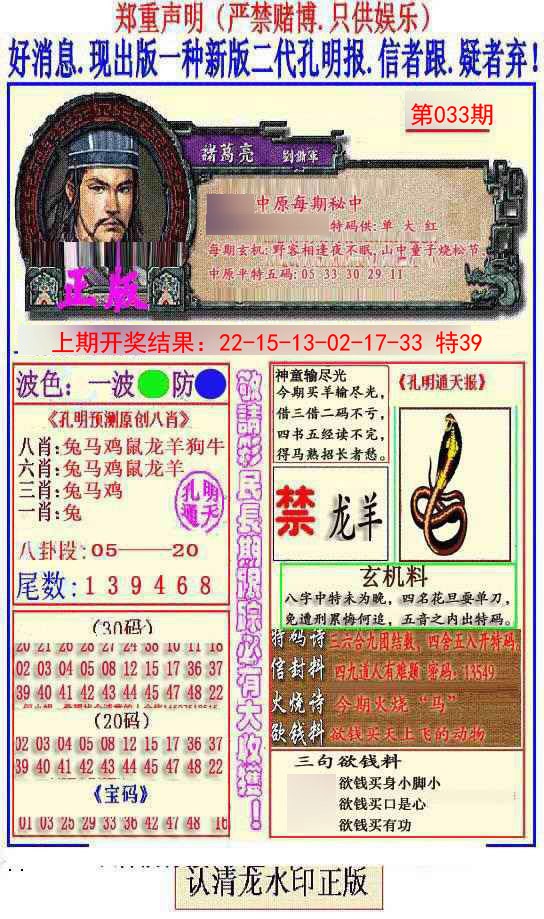 郑重声明（严禁赌博.只供娱乐）
好消息.现出版一种新版二代孔明报.信者跟.疑者弃！
第033期
諸葛亮 劉辭軍
中原每期秘中
特码供: 单 大 红
每期玄机: 野客相逢夜不眠, 山中童子烧松节
中原平特五码: 05 33 30 29 11
正版
上期开奖结果：22-15-13-02-17-33 特39
波色：一波 防
《孔明预测原创八肖》
八肖: 兔马鸡鼠龙羊狗牛
六肖: 兔马鸡鼠龙羊
三肖: 兔马鸡
一肖: 兔
孔明通天
八卦段: 05——20
尾数: 1 3 9 4 6 8
(30码)
20 21 26 28 27 24 38 10 11 18
02 03 04 05 08 12 15 17 36 37
39 40 41 42 43 44 45 47 48 22
(20码)
02 03 04 05 08 12 15 17 36 37
39 40 41 42 43 44 45 47 48 22
《宝码》
01 03 25 29 33 36 42 47 48 16
敬請彩民長期跟踪必有大收獲！
神童输尽光
今期买羊输尽光,
借三借二码不亏,
四书五经读不完,
得马熟招长者愁。
《孔明通天报》
禁 龙羊
玄机料
八字中特未为晚, 四名花旦耍单刀,
免遭刑累悔何追, 五音之内出特码。
特码诗 三六合九团结数, 四舍五入开特码,
信封料 四九道人有难题 密码: 13549
火烧诗 今期火烧“马”
欲钱料 欲钱买天上飞的动物
三句欲钱料
欲钱买身小脚小
欲钱买口是心
欲钱买有功
认清龙水印正版